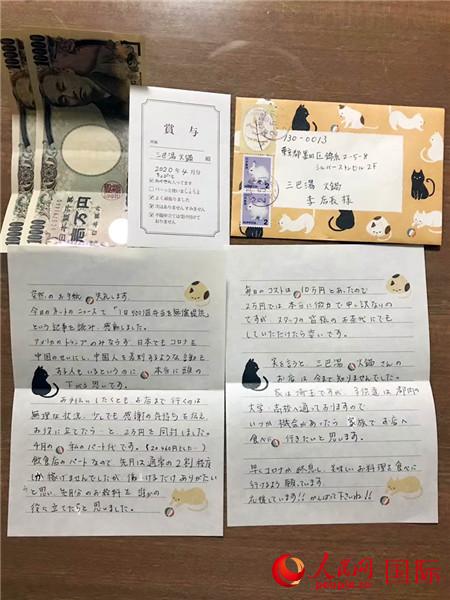 10000
10000
壱万円
日本銀行券
10000
賞与
三巴湯火鍋 殿
2020年4月分
130-0013
東京都墨田区錦糸2-5-8
シルバーストンビル2F
三巴湯 火鍋
李店長様
突然のお手紙 失礼します。
今日のネットのニュースで「1日500個弁当を無償提供」
という記事を読み、感動しました。
アメリカのトランプのみならず、日本でもコロナを
中国のせいにし、中国人を差別するような言動を
する人もいるというのに 本当に頭の
下がる思いです。
お手伝いしたくともお店まで行くのは
無理な状況、少しでも感謝の気持ちを伝え、
お役に立てたら…と 2万円を同封しました。
4月の 私のパート代です。
飲食店のパートなので 先月は通常の2割程度
しか稼げませんでしたが 働けるだけありがたい
と思い、先月分のお給料を 誰かの
役に立てたらと思いました。
毎日のコストは 10万円とあったので
2万円では本当に微力で申し訳ないの
ですが、スタッフの皆様のお茶代にでも
していただけたら幸いです。
実を言うと 三巴湯 火鍋さんの
お店は今まで知りませんでした。
家は埼玉ですが、子供達は都内の
大学・高校へ通っておりますので
いつか機会があったら 家族でお店へ
食べに 行きたいと思います。
早くコロナが終息し、美味しいお料理を食べに
行けるよう願っています。
応援しています!! がんばって下さいね!!
人民网 国际
people.cn